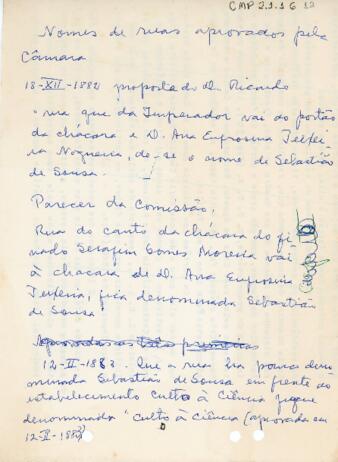 CMP 2.1.1.6 12
Nomes de ruas aprovados pela
Câmara
18-XII-1882 proposta do Dr. Ricardo
"rua que da Imperador vai do portão
da chácara e D. Ana Eufrosina Teixei-
ra Nogueira, dê-se o nome de Sebastião
de Sousa.
Parecer da Comissão,
Rua do canto da chácara do fi-
nado Serafim Gomes Moreira vai
à chacara de D. Ana Eufrosina
Teixeira, fica denominada Sebastião
de Sousa"
Aprovadas as
12-II-1883. Que a rua ha pouco deno
minada Sebastião de Sousa em frente do
estabelecimento Culto à Ciência fique
denominada "Culto à Ciência (aprovada em
12-II-1883)